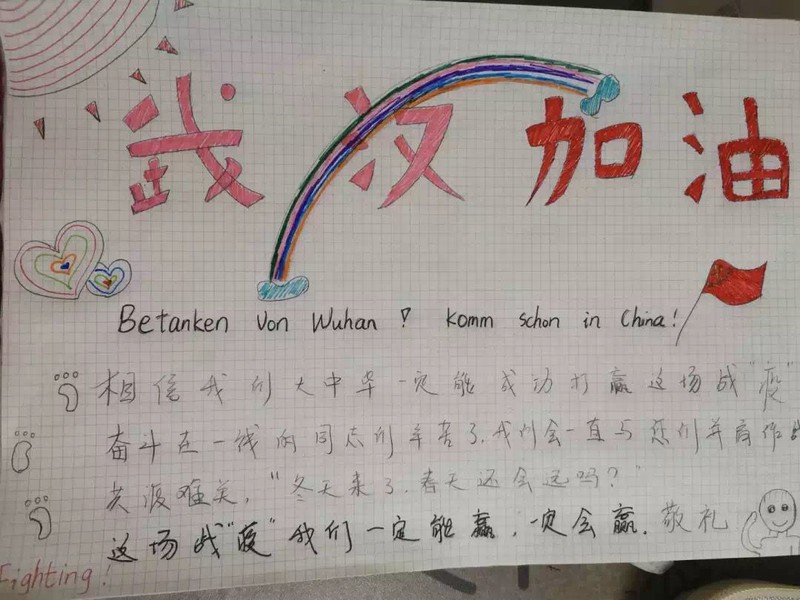 武汉加油
Betanken von Wuhan! Komm schon in China!
相信我们大中华一定能成功打赢这场战"疫"
奋斗在一线的同志们辛苦了,我们会一直与您们并肩作战
共渡难关,"冬天来了,春天还会远吗?"
这场战"疫"我们一定能赢,一定会赢.敬礼
Fighting!